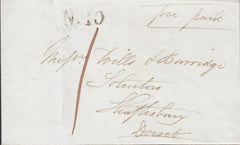 No. 10
pre paid
1
Messrs Wills & Burridge
Solicitors
Shaftesbury
Dorset